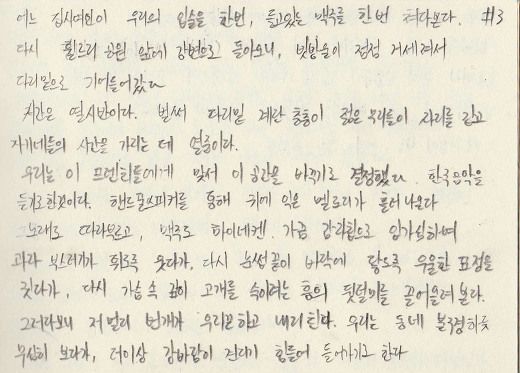 어느 집시여인이 우리의 입술을 한번, 들고있는 맥주를 한번 쳐다본다. #3
다시 퐁네프 공원 앞에 강변으로 돌아오니, 빗방울이 점점 거세져서
다리밑으로 기어들어갔다
시간은 열시반이다. 벌써 다리밑 계단 층층이 젊은 무리들이 자리를 잡고
자기네들의 시간을 가리는 데 열중이다.
우리는 이 프렌치들에게 맞서 이 공간을 바꾸기로 결정했다. 한국음악을
듣기로한것이다. 핸드폰스피커를 통해 귀에 익은 멜로디가 흘러나온다
노래도 따라부르고, 맥주도 하이네켄. 가끔 감자칩으로 입가심하며
과자 부스러기가 튀도록 웃다가, 다시 눈썹끝이 바닥에 닿도록 우울한 표정을
짓다가, 다시 가슴속 깊이 고개를 숙이려는 흥의 뒷덜미를 끌어올려본다.
그러다보니 저멀리 번개가 우르르하고 내리친다. 우리는 동네 불구경하듯
무심히 보다가, 더이상 강바람이 견디기 힘들어 들어가기로 한다